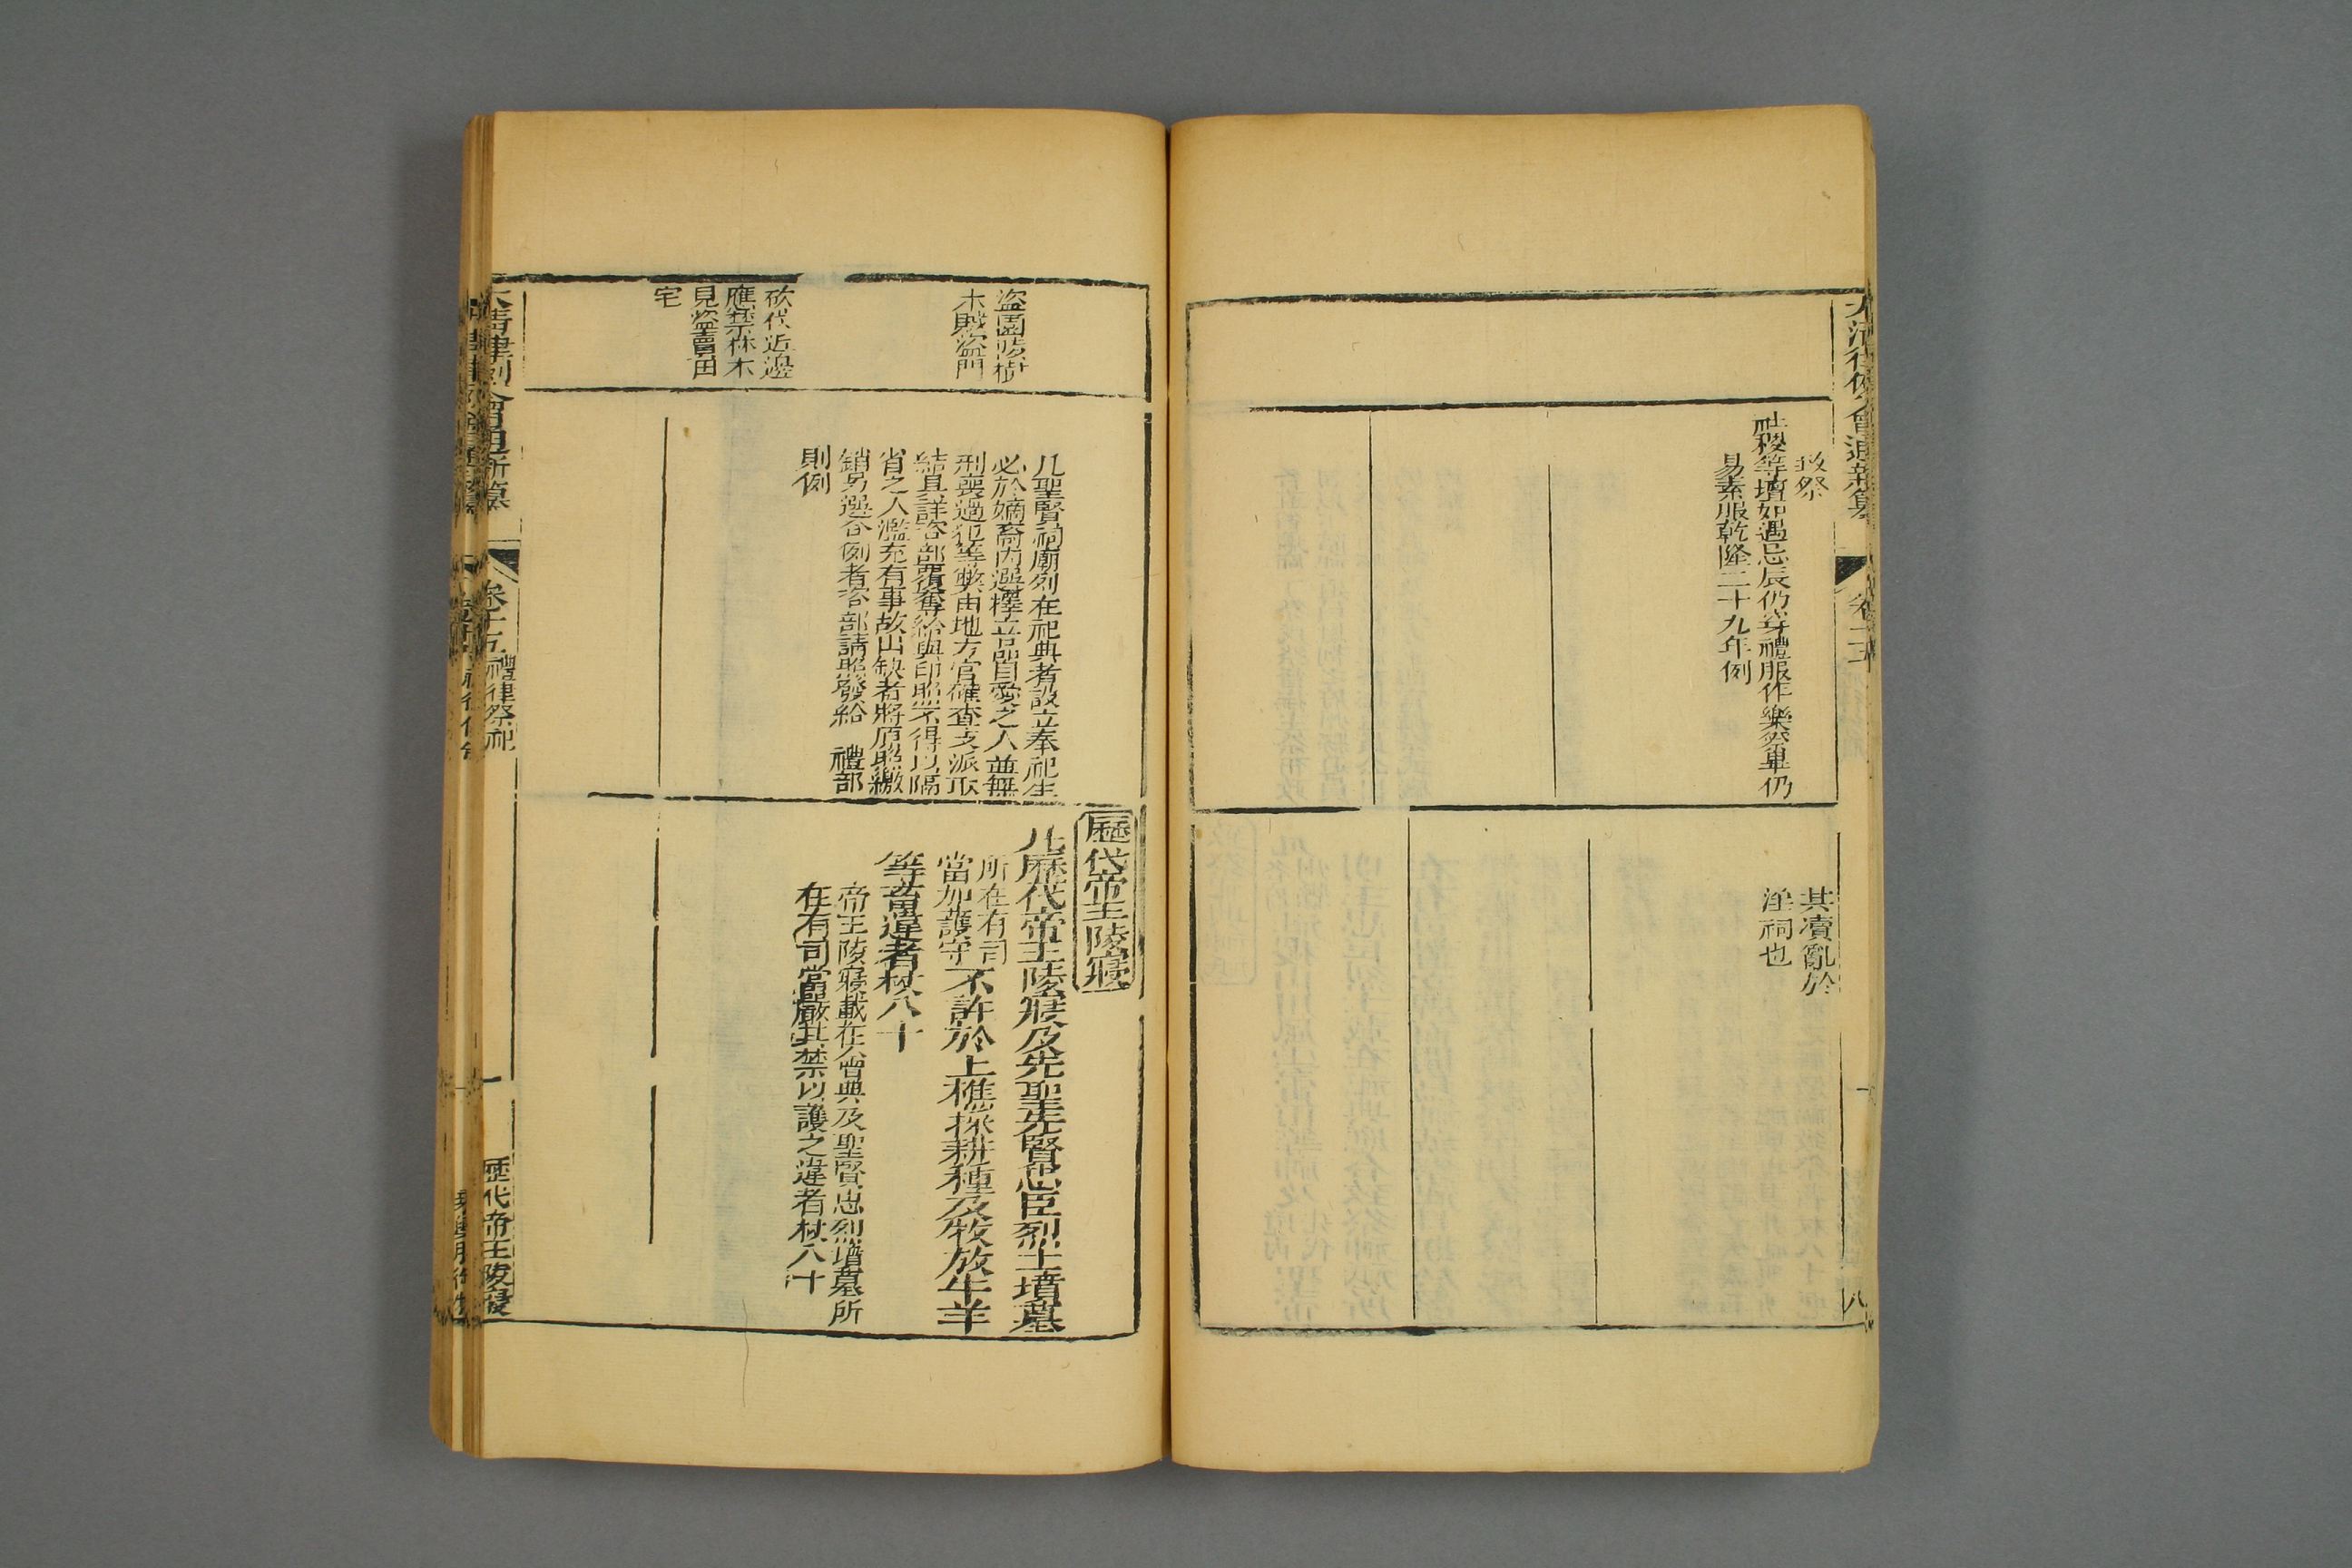 大清律例會通新纂
卷十五
致祭
社稷等壇如遇忌辰仍穿禮服作樂祭畢仍
易素服乾隆二十九年例
其凟亂於
淫祠也
八
盜園陵樹
木賊盜門
砍伐近邊
應禁林木
見盜賣田
宅
凡聖賢祠廟列在祀典者設立奉祀生
必於嫡裔內選擇立品自愛之人並無
刑喪過犯等弊由地方官確查支派取
結具詳咨部覆奪給與印照不得以隔
省之人濫充有事故出缺者將原照繳
銷另選合例者咨部請照發給 禮部
則例
歷代帝王陵寢
凡歷代帝王陵寢及先聖先賢忠臣烈士墳墓
所在有司
當加護守
不許於上樵採耕種及牧放牛羊
等畜違者杖八十
帝王陵寢載在會典及聖賢忠烈墳墓所
在有司當嚴其禁以護之違者杖八十
大清律例會通新纂
卷十五
禮律祭祀
一
歷代帝王陵寢